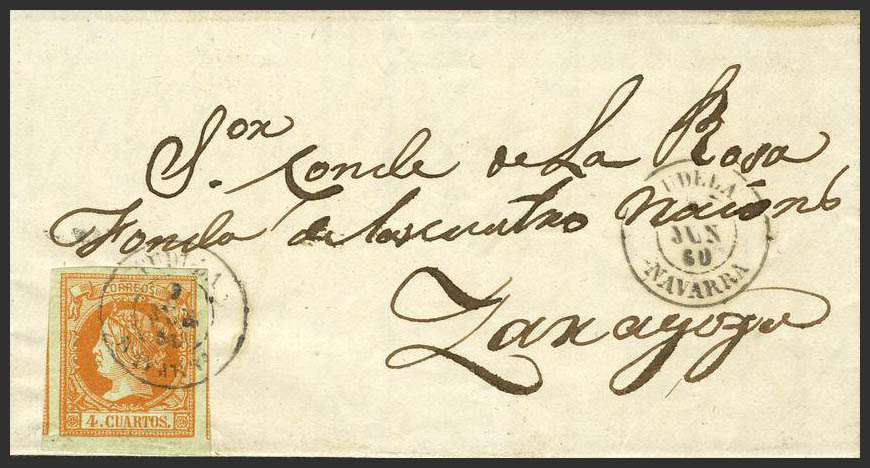 S.on Conde de La Rosa
Fonda de las cuatro Nacions
Zaragoza
UDELA
JUN
60
NAVARRA
UDELA
CORREOS
4 CUARTOS.